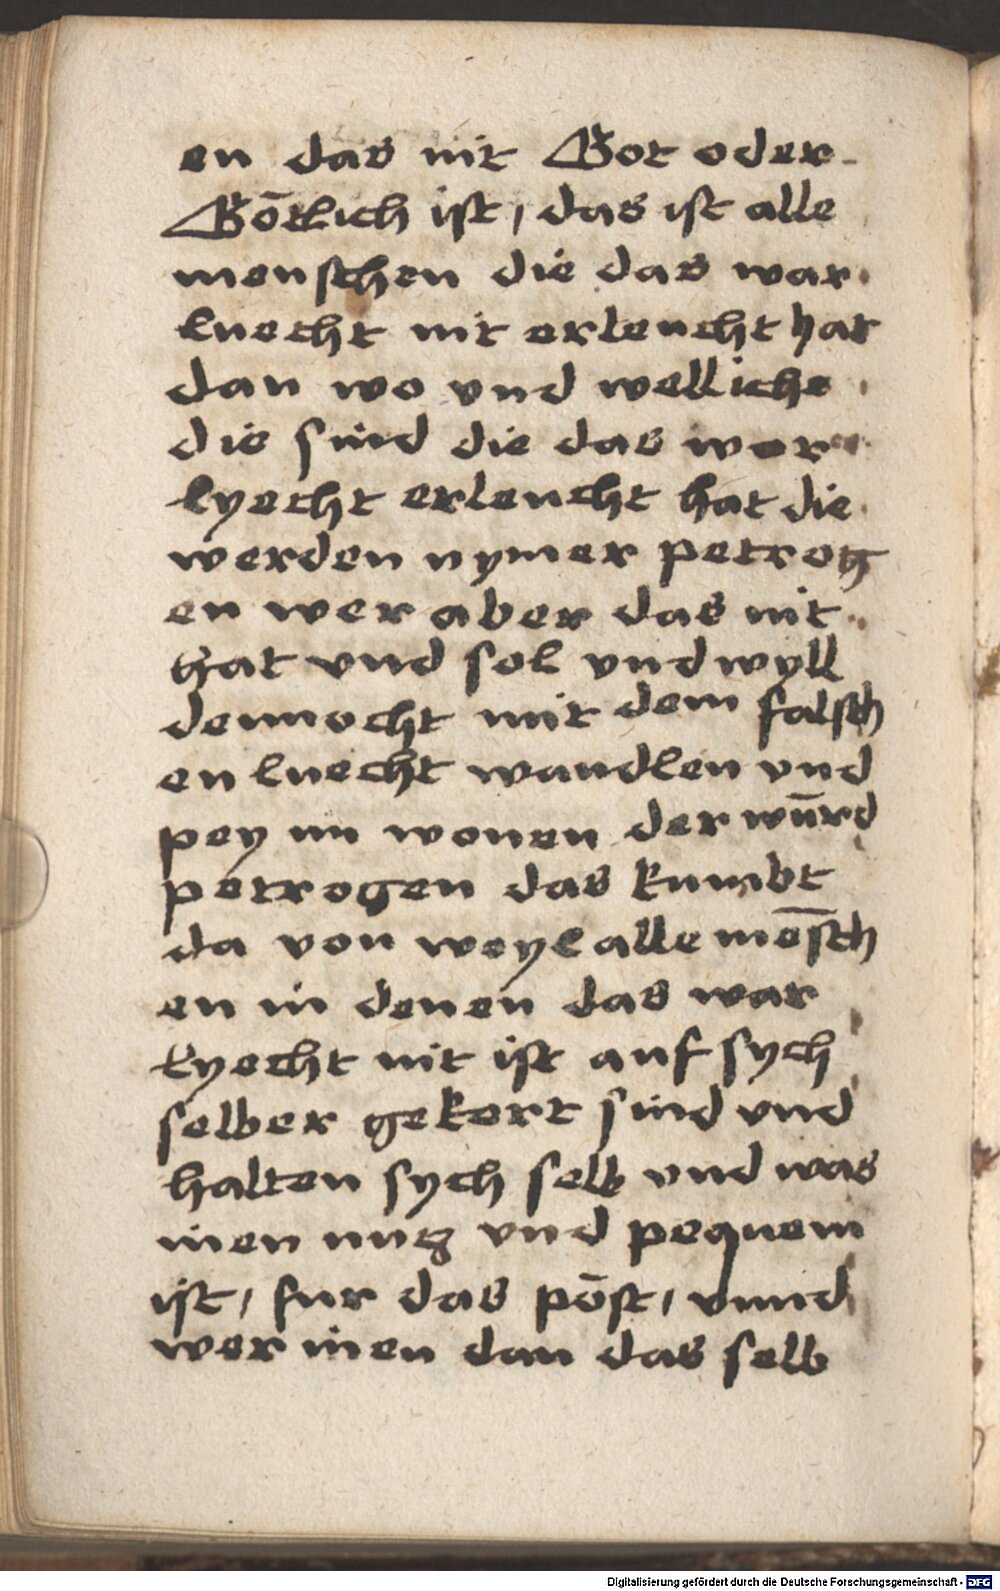 en das nit Got oder
Go̅tlich ist, das ist alle
menschen die das war
luecht nit erleucht hat
dan wo vnd welliche
die sind die das war
lyecht erleucht hat die
werden nymer petrog
en wer aber das nit
hat vnd sol vnd wyll
dennocht mit dem falsch
en luecht wandlen vnd
pey im wonen der wu̅rd
petrogen das kumbt
da von weyl alle me̅sch
en in denen das war
lyecht nit ist auf sych
selber gekert sind vnd
halten sych selb vnd was
inen nutz vnd pequem
ist, fur das po̅st, vnnd
wer inen dan das selb
Digitalisierung gefördert durch die Deutsche Forschungsgemeinschaft - DFG